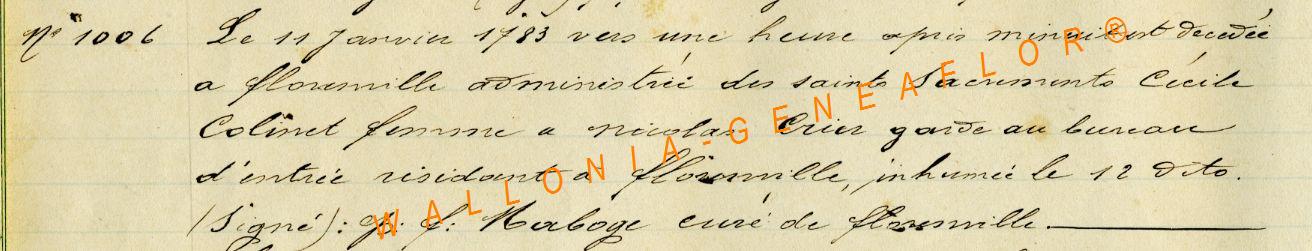 N° 1006 Le 11 Janvier 1783 vers une heure après minuit est décédée
a florenville administrée des saints Sacrements Cécile
Colinet femme a nicolas Crier garde au bureau
d'entrée résidant a florenville, inhumée le 12 dito.
(Signé): p. f. Merboge curé de florenville.
WALLONIA-GENEAELOR®